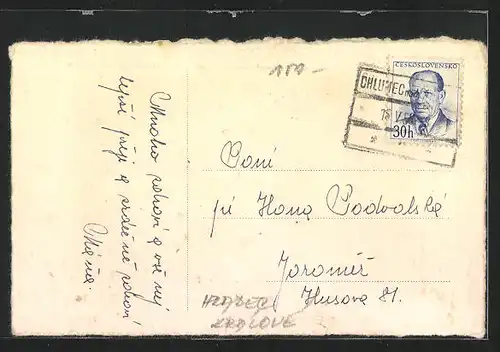 150 -
Mnoho zdraví a vše nej
lepší přeje a srdečně zdraví
Máňa.
ČESKOSLOVENSKO
30h
CHLUMEC
Paní
pí Hana Podvolská
Jaroměř
Husova 81.
HRADEC
KRÁLOVÉ